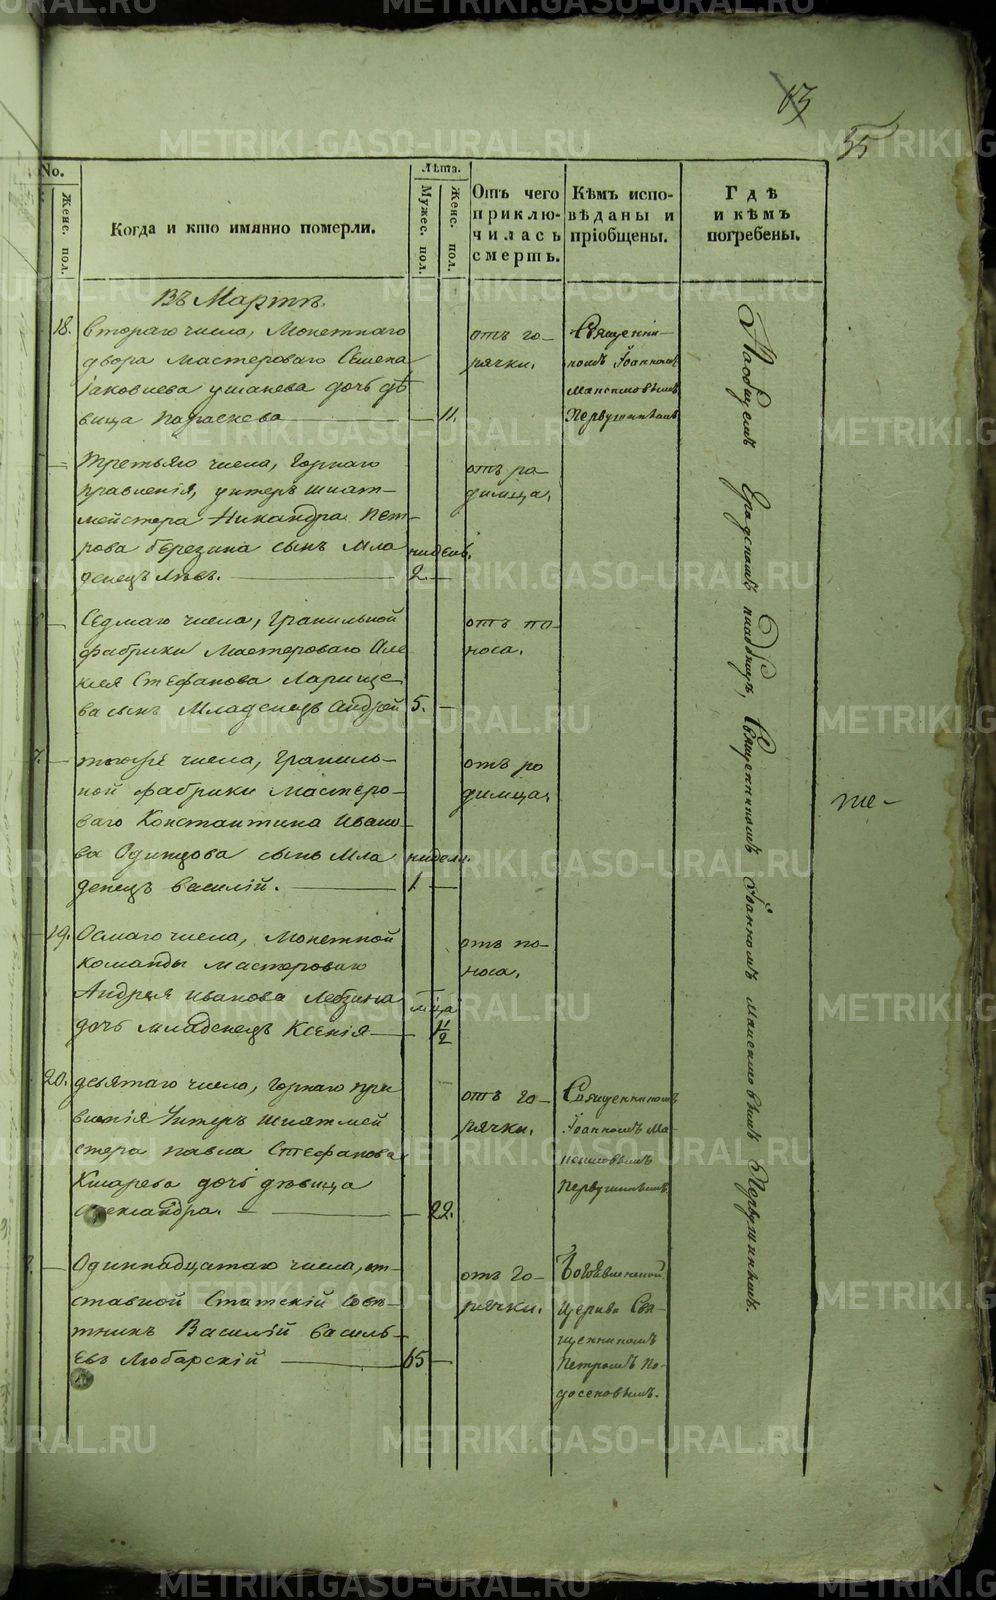 63
55
No.
Женс. пол.
Когда и кто имянно померли.
Лѣта.
Мужес. пол.
Женс. пол.
Отъ чего
приклю-
чилась
смерть.
Кѣмъ испо-
вѣданы и
пріобщены.
Гдѣ
и кѣмъ
погребены.
Въ Мартѣ.
18.
Втораго числа, Монетнаго
двора мастероваго Семена
Іаковлева Ушакова дочь дѣ
вица Параскева
11.
отъ го-
рячки.
Священни-
комъ Іоанномъ
Максимовымъ
Первушинымъ
Третьяго числа, Горнаго
правленія, унтеръ шихт-
мейстера Никандра Пет-
рова Березина сынъ мла
денецъ Левъ.
недель.
2
отъ ро-
димца.
Седмаго числа, Гранильной
фабрики мастероваго Але
ксея Стефанова Ларище
ва сынъ младенецъ Андрей
5.
отъ по-
носа.
7.
тогоже числа, Граниль-
ной фабрики мастеро-
ваго Константина Ивано-
ва Одинцова сынъ мла
денецъ Василій.
неделя.
1
отъ ро
димца.
19.
Осмаго числа, Монетной
команды мастероваго
Андрея Иванова Лебзина
дочь младенецъ Ксенія
м-ца
1/2
отъ по-
носа.
20.
девятаго числа, Горнаго пра
вленія Унтеръ шихтмей
стера Павла Стефанова
дочь дѣвица
Александра.
22.
отъ го-
рячки.
Священникомъ
Іоанномъ Ма-
ксимовымъ
Первушинымъ.
Одиннадцатаго числа, от-
ставной Статскій Совѣ-
тникъ Василій Василь-
евъ Любарскій
65
отъ го-
рячки.
Богоявленской
церкви Свя-
щенникомъ
Петромъ По-
досеновымъ.
На общемъ градскомъ кладбищѣ, Священникомъ Іоанномъ Максимовымъ Первушинымъ.
те-
METRIKI.GASO-URAL.RU